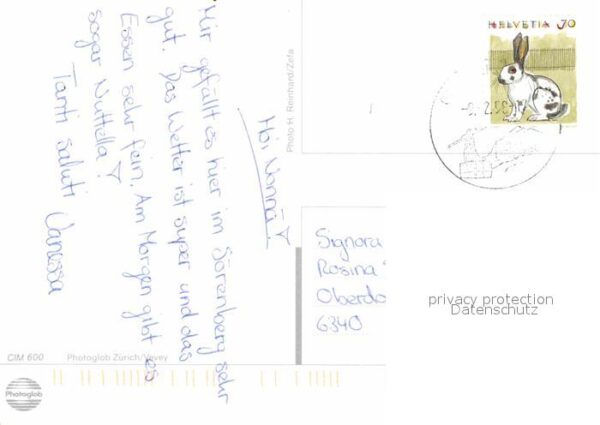 Hoi Nonna
Mir gefällt es hier im Sörenberg sehr
gut. Das Wetter ist super und das
Essen sehr fein. Am Morgen gibt es
sogar Nuttella!
Tanti saluti
Vanessa
Photo H. Reinhard/Zefa
HELVETIA 70
Signora
Rosina
Oberdo
6340
privacy protection
Datenschutz
CIM 600 Photoglob Zürich/Vevey
Photoglob